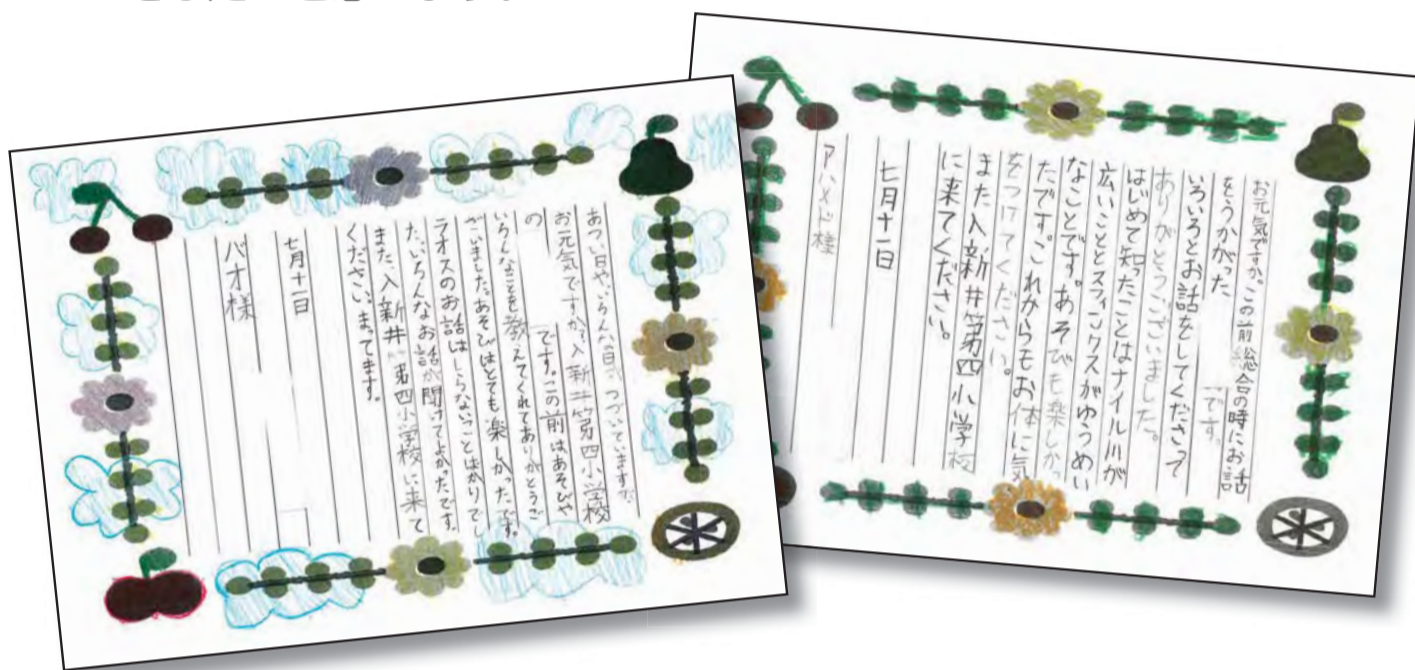 あつい日や、いろんな日が、つづいていますが、
お元気ですか?入新井第四小学校
の です。この前はあそびや
いろんなことを教えてくれてありがとうご
ざいました。あそびはとても楽しかったです。
ラオスのお話はしらないことばかりでし
た。いろんなお話が聞けてよかったです。
また、入新井第四小学校に来て
ください。まってます。
七月十一日
バオ様
お元気ですか。この前総合の時にお話
をうかがった です。
いろいろとお話をしてくださって
ありがとうございました。
はじめて知ったことはナイル川が
広いこととスフィンクスがゆうめい
なことです。あそびも楽しかっ
たです。これからもお体に気
をつけてください。
また入新井第四小学校
に来てください。
七月十一日
アハメド様